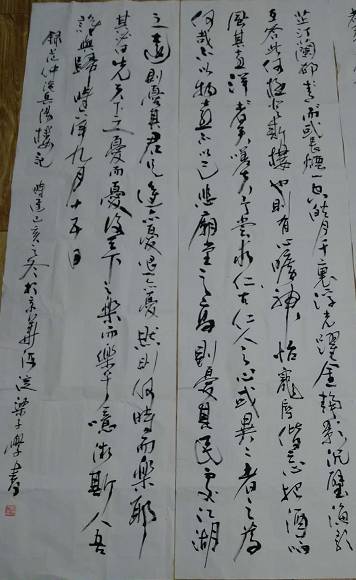 芷汀蘭郁々青々而或長煙一空皓月千里浮光躍金靜影沉璧漁歌
互答此何極登斯樓也則有心曠神怡寵辱偕忘把酒臨
風其喜洋々者矣嗟夫予嘗求古仁人之心或異二者之為
何哉不以物喜不以己悲廟堂之高則憂其民處江湖
之遠則憂其君是進亦憂退亦憂然則何時而樂耶
其必曰先天下之憂而憂後天下之樂而樂乎噫微斯人吾
誰與歸時六年九月十五日
錄范仲淹岳陽樓記 時逢己亥之冬於京華 梁子學書